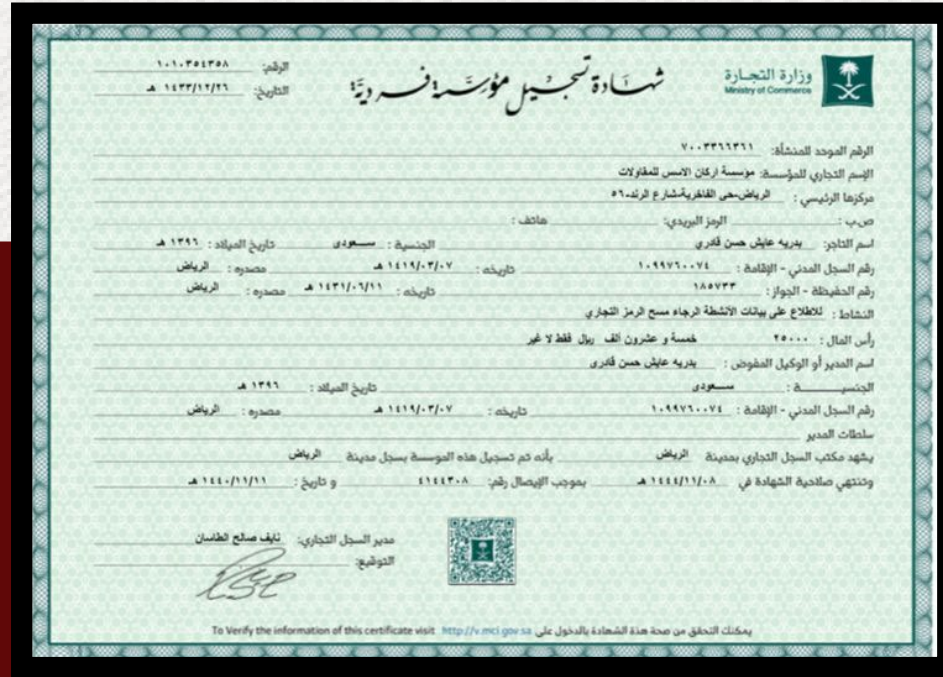 وزارة التجارة
Ministry of Commerce
شهادة تسجيل مؤسسة فردية
الرقم: ١٠١٠٣٥٤٣٥٨
التاريخ: ١٤٣٣/١٢/٢٦ هـ
الرقم الموحد للمنشأة: ٧٠٠٣٣٦٦٣٦١
الإسم التجاري للمؤسسة: مؤسسة اركان الاسس للمقاولات
مركزها الرئيسي : الرياض-حى الفاخرية-شارع الرند-٥٦
ص.ب : الرمز البريدي: هاتف :
اسم التاجر: بدريه عايش حسن قادري الجنسية : سعودى تاريخ الميلاد : ١٣٩٦ هـ
رقم السجل المدني - الإقامة : ١٠٩٩٧٦٠٠٧٤ تاريخه : ١٤١٩/٠٣/٠٧ هـ مصدره : الرياض
رقم الحفيظة - الجواز : ١٨٥٧٣٣ تاريخه : ١٤٣١/٠٦/١١ هـ مصدره : الرياض
النشاط : للاطلاع على بيانات الأنشطة الرجاء مسح الرمز التجاري
رأس المال : ٢٥٠٠٠ خمسة و عشرون ألف ريال فقط لا غير
اسم المدير أو الوكيل المفوض : بدريه عايش حسن قادرى
الجنسيـــــة : سعودى تاريخ الميلاد : ١٣٩٦ هـ
رقم السجل المدني - الإقامة : ١٠٩٩٧٦٠٠٧٤ تاريخه : ١٤١٩/٠٣/٠٧ هـ مصدره : الرياض
سلطات المدير
يشهد مكتب السجل التجاري بمدينة الرياض بأنه تم تسجيل هذه الموسسة بسجل مدينة الرياض
وتنتهي صلاحية الشهادة في ١٤٤٤/١١/٠٨ هـ بموجب الإيصال رقم: ٤١٤٤٣٠٨ و تاريخ : ١٤٤٠/١١/١١ هـ
مدير السجل التجاري: نايف صالح الطاسان
التوقيع:
يمكنك التحقق من صحة هذة الشهادة بالدخول على To Verify the information of this certificate visit http://v.mci.gov.sa